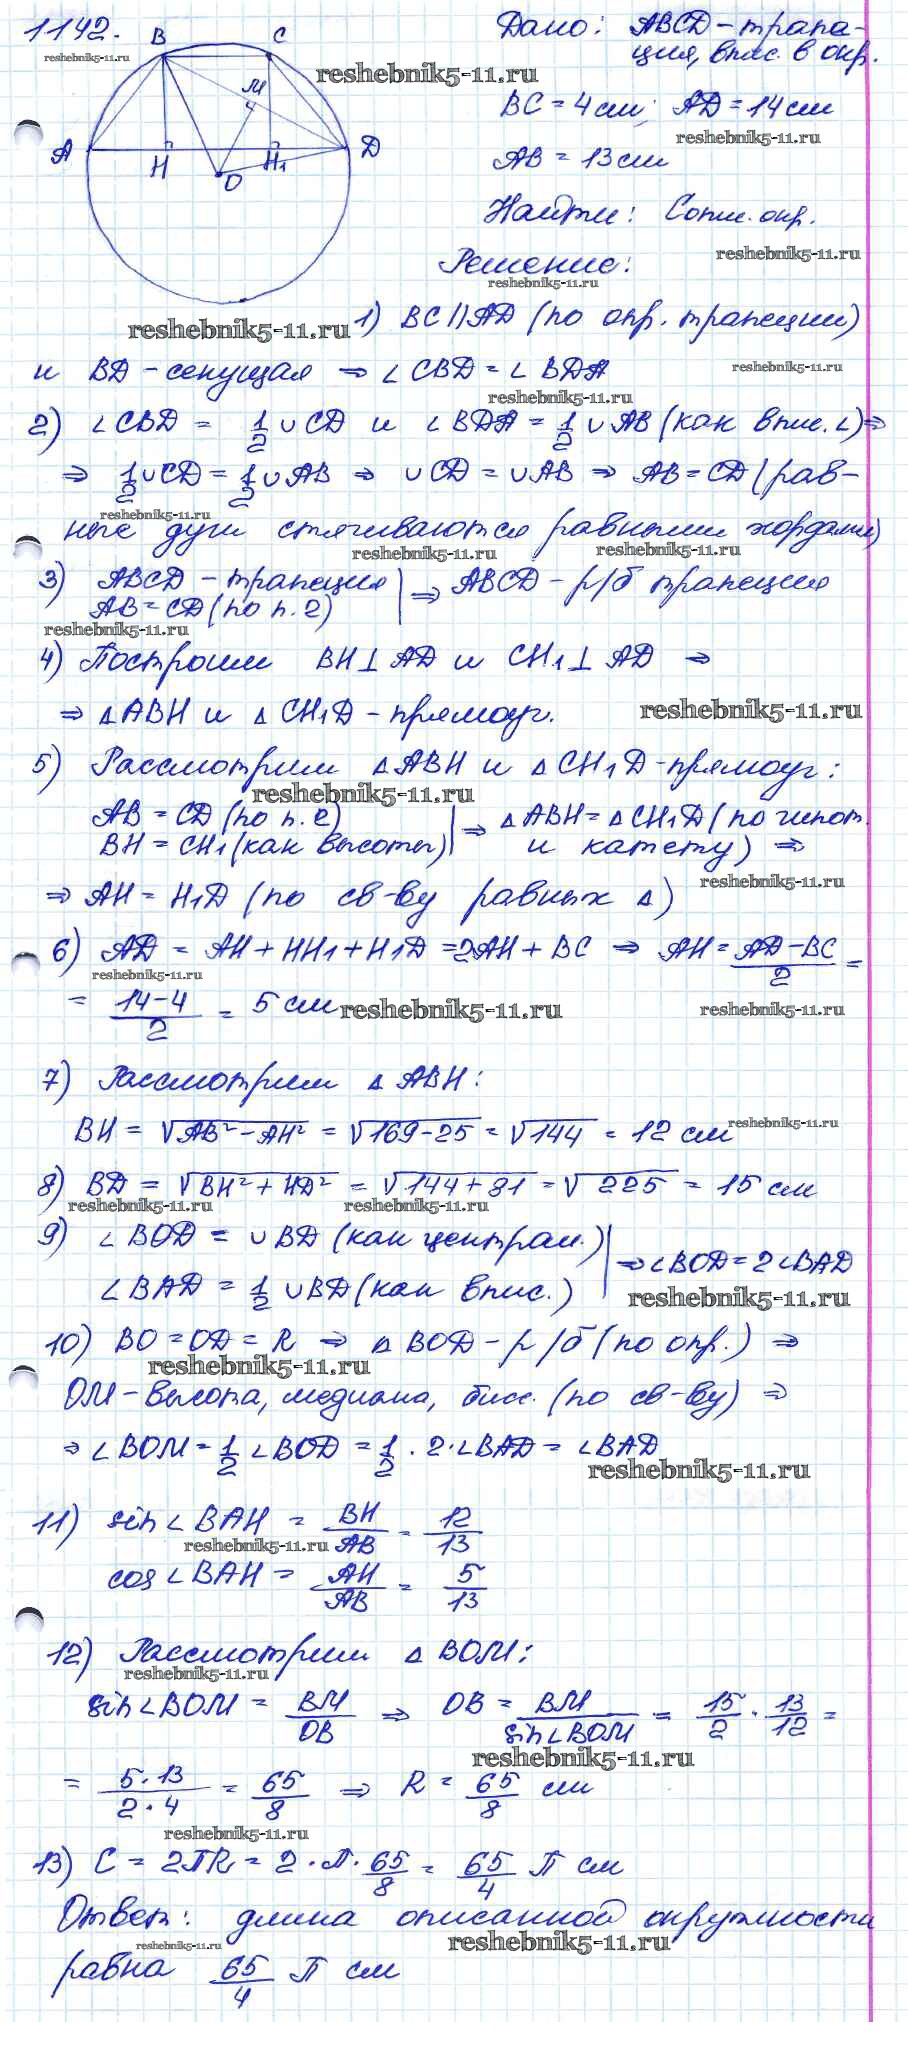 1142.
B C
M
A H O H₁ D
Дано: ABCD – трапе-
ция, впис. в окр.
BC = 4 см; AD = 14 см
AB = 13 см
Найти: Cопис. окр.
Решение:
1) BC || AD (по опр. трапеции)
и BD – секущая ⇒ ∠CBD = ∠BDA
2) ∠CBD = 1/2 ∪CD и ∠BDA = 1/2 ∪AB (как впис. ∠) ⇒
⇒ 1/2 ∪CD = 1/2 ∪AB ⇒ ∪CD = ∪AB ⇒ AB = CD (рав-
ные дуги стягиваются равными хордами)
3) ABCD – трапеция | ⇒ ABCD – р/б трапеция
AB = CD (по п. 2)
4) Построим BH ⊥ AD и CH₁ ⊥ AD ⇒
⇒ △ABH и △CH₁D – прямоуг.
5) Рассмотрим △ABH и △CH₁D – прямоуг:
AB = CD (по п. 2) | ⇒ △ABH = △CH₁D (по гипот.
BH = CH₁ (как высоты) | и катету) ⇒
⇒ AH = H₁D (по св-ву равных △)
6) AD = AH + HH₁ + H₁D = 2AH + BC ⇒ AH = (AD – BC)/2 =
= (14 – 4)/2 = 5 см
7) Рассмотрим △ABH:
BH = √(AB² – AH²) = √(169 – 25) = √144 = 12 см
8) BD = √(BH² + HD²) = √(144 + 81) = √225 = 15 см
9) ∠BOD = ∪BD (как централ.) | ⇒ ∠BOD = 2∠BAD
∠BAD = 1/2 ∪BD (как впис.)
10) BO = OD = R ⇒ △BOD – р/б (по опр.) ⇒
OM – высота, медиана, бисс. (по св-ву) ⇒
⇒ ∠BOM = 1/2 ∠BOD = 1/2 · 2 · ∠BAD = ∠BAD
11) sin∠BAH = BH/AB = 12/13
cos∠BAH = AH/AB = 5/13
12) Рассмотрим △BOM:
sin∠BOM = BM/OB ⇒ OB = BM/sin∠BOM = 15/2 · 13/12 =
= (5 · 13)/(2 · 4) = 65/8 ⇒ R = 65/8 см
13) C = 2πR = 2 · π · 65/8 = 65/4 π см
Ответ: длина описанной окружности
равна 65/4 π см
reshebnik5-11.ru